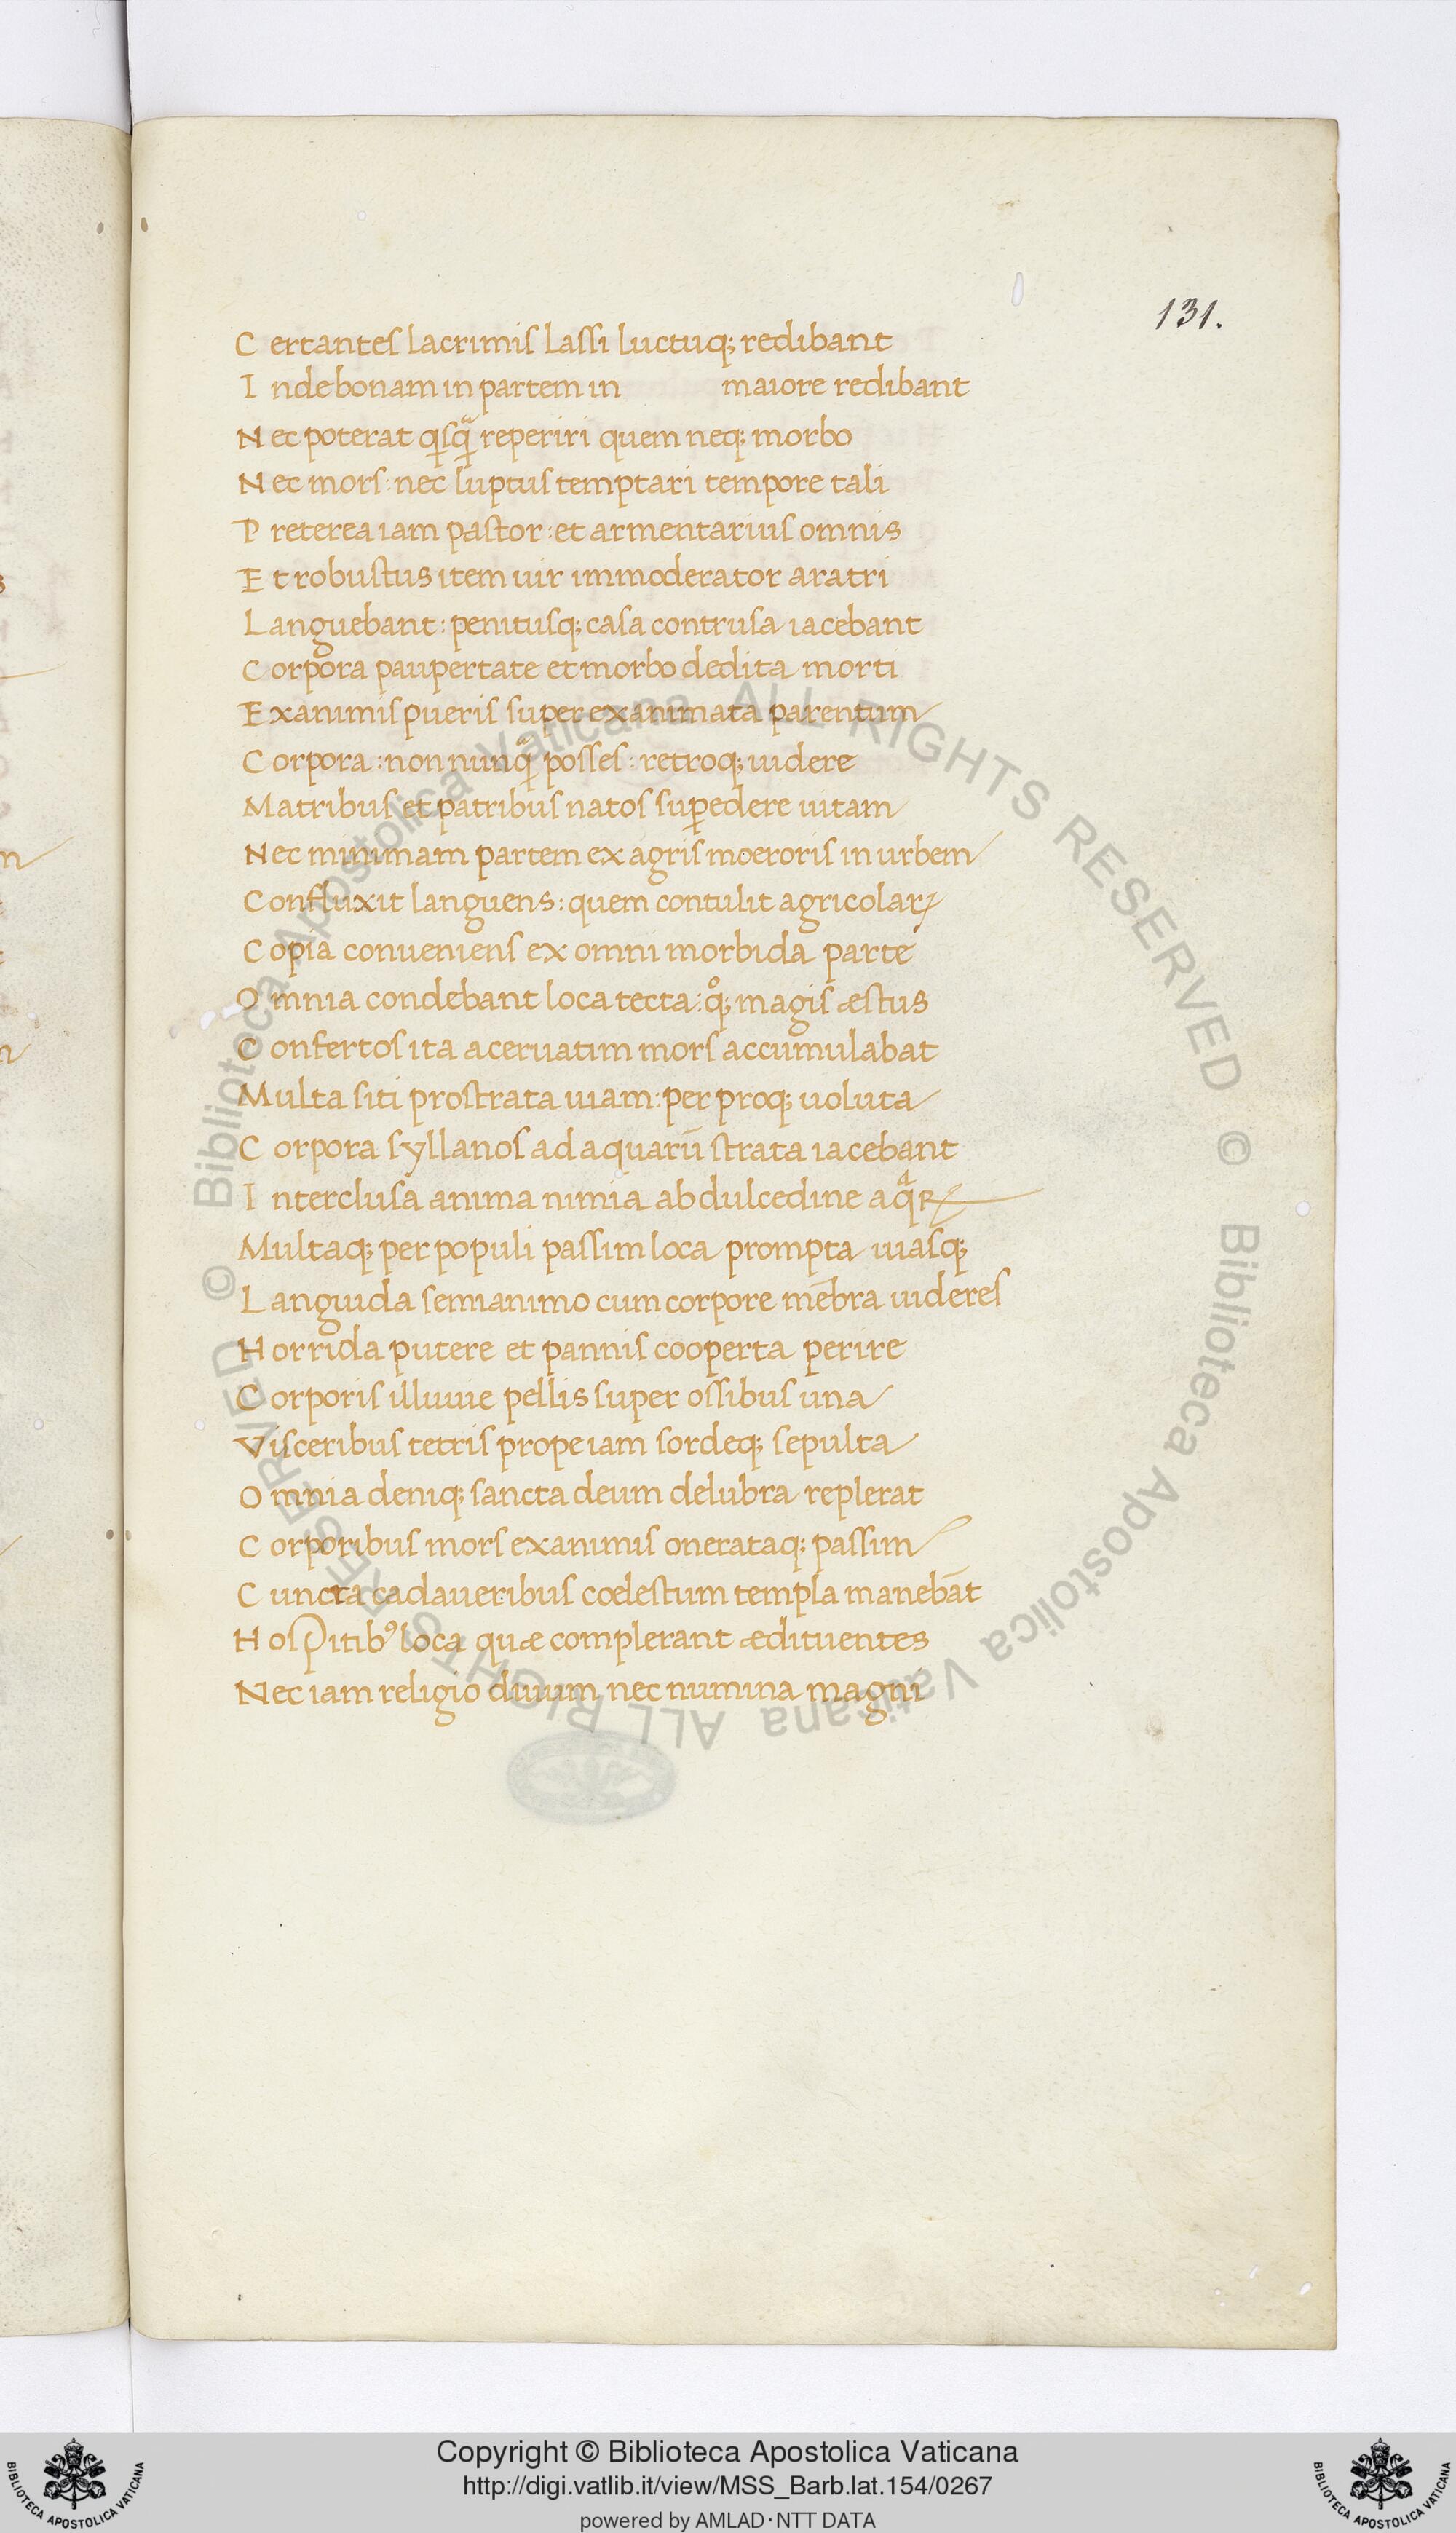 131.
Certantes lacrimis lassi luctuq; redibant
Inde bonam in partem in maiore redibant
Nec poterat qsq̃ reperiri quem neq; morbo
Nec mors: nec luptus temptari tempore tali
Preterea iam pastor: et armentarius omnis
Et robustus item uir immoderator aratri
Languebant: penitusq; casa contrusa iacebant
Corpora paupertate et morbo dedita morti
Exanimis pueris super exanimata parentum
Corpora: non nunq̃ posses: retroq; uidere
Matribus et patribus natos suꝑedere uitam
Nec minimam partem ex agris moeroris in urbem
Confluxit languens: quem contulit agricolaꝝ
Copia conueniens ex omni morbida parte
Omnia condebant loca tecta: qͦ; magis æstus
Confertos ita aceruatim mors accumulabat
Multa siti prostrata uiam: per proq; uoluta
Corpora syllanos ad aquarū strata iacebant
Interclusa anima nimia ab dulcedine aqᵃꝝ
Multaq; per populi passim loca prompta uiasq;
Languida semianimo cum corpore mēbra uideres
Horrida putere et pannis cooperta perire
Corporis illuuie pellis super ossibus una
Visceribus tetris prope iam sordeq; sepulta
Omnia deniq; sancta deum delubra replerat
Corporibus mors exanimis onerataq; passim
Cuncta cadaueribus coelestum templa manebāt
Hospitibꝰ loca quæ complerant ædituentes
Nec iam religio diuum nec numina magni
© Biblioteca Apostolica Vaticana ALL RIGHTS RESERVED © Biblioteca Apostolica Vaticana ALL RIGHTS RESERVED
Copyright © Biblioteca Apostolica Vaticana
http://digi.vatlib.it/view/MSS_Barb.lat.154/0267
powered by AMLAD·NTT DATA
BIBLIOTECA APOSTOLICA VATICANA
BIBLIOTECA APOSTOLICA VATICANA